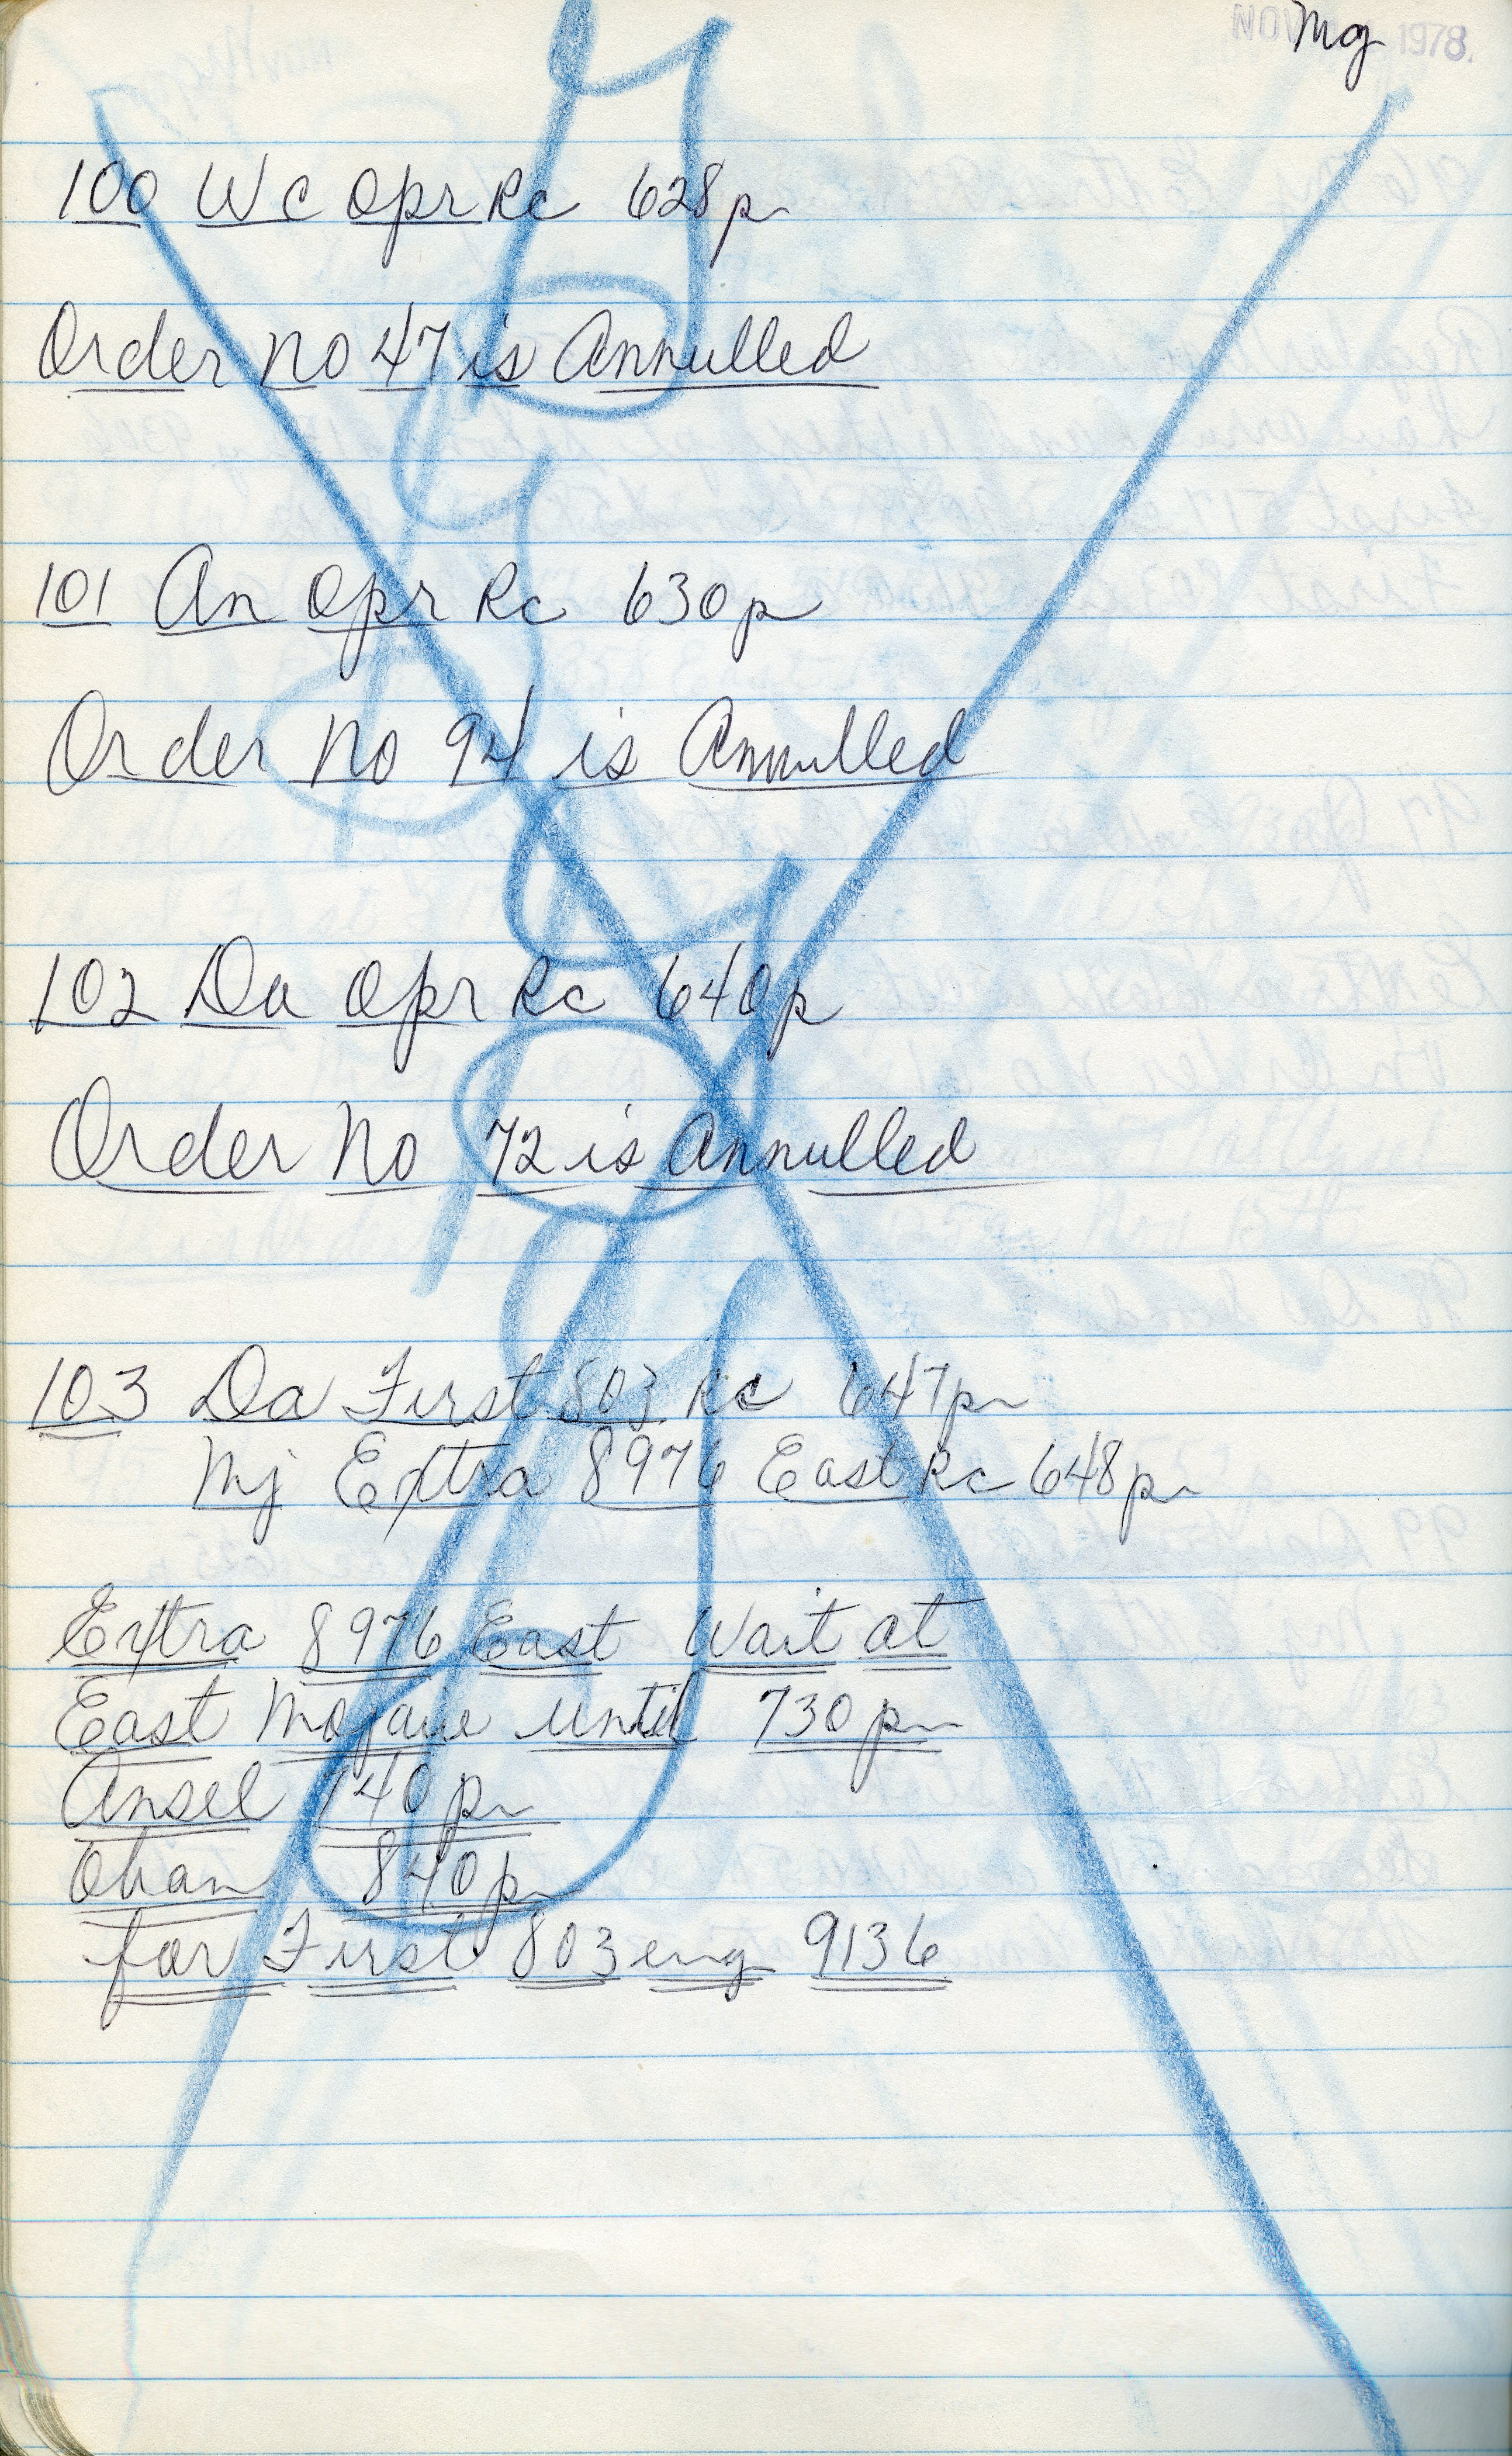 NOV 1978
Mg
100 Wc Opr Rc 628p
Order No 47 is Annulled
101 An Opr Rc 630p
Order No 94 is Annulled
102 Da Opr Rc 640p
Order No 72 is Annulled
103 Da First 803 Rc 647p
Mj Extra 8976 East Rc 648p
Extra 8976 East Wait at
East Mojave until 730p
Ansel 740p
Oban 840p
for First 803 eng 9136